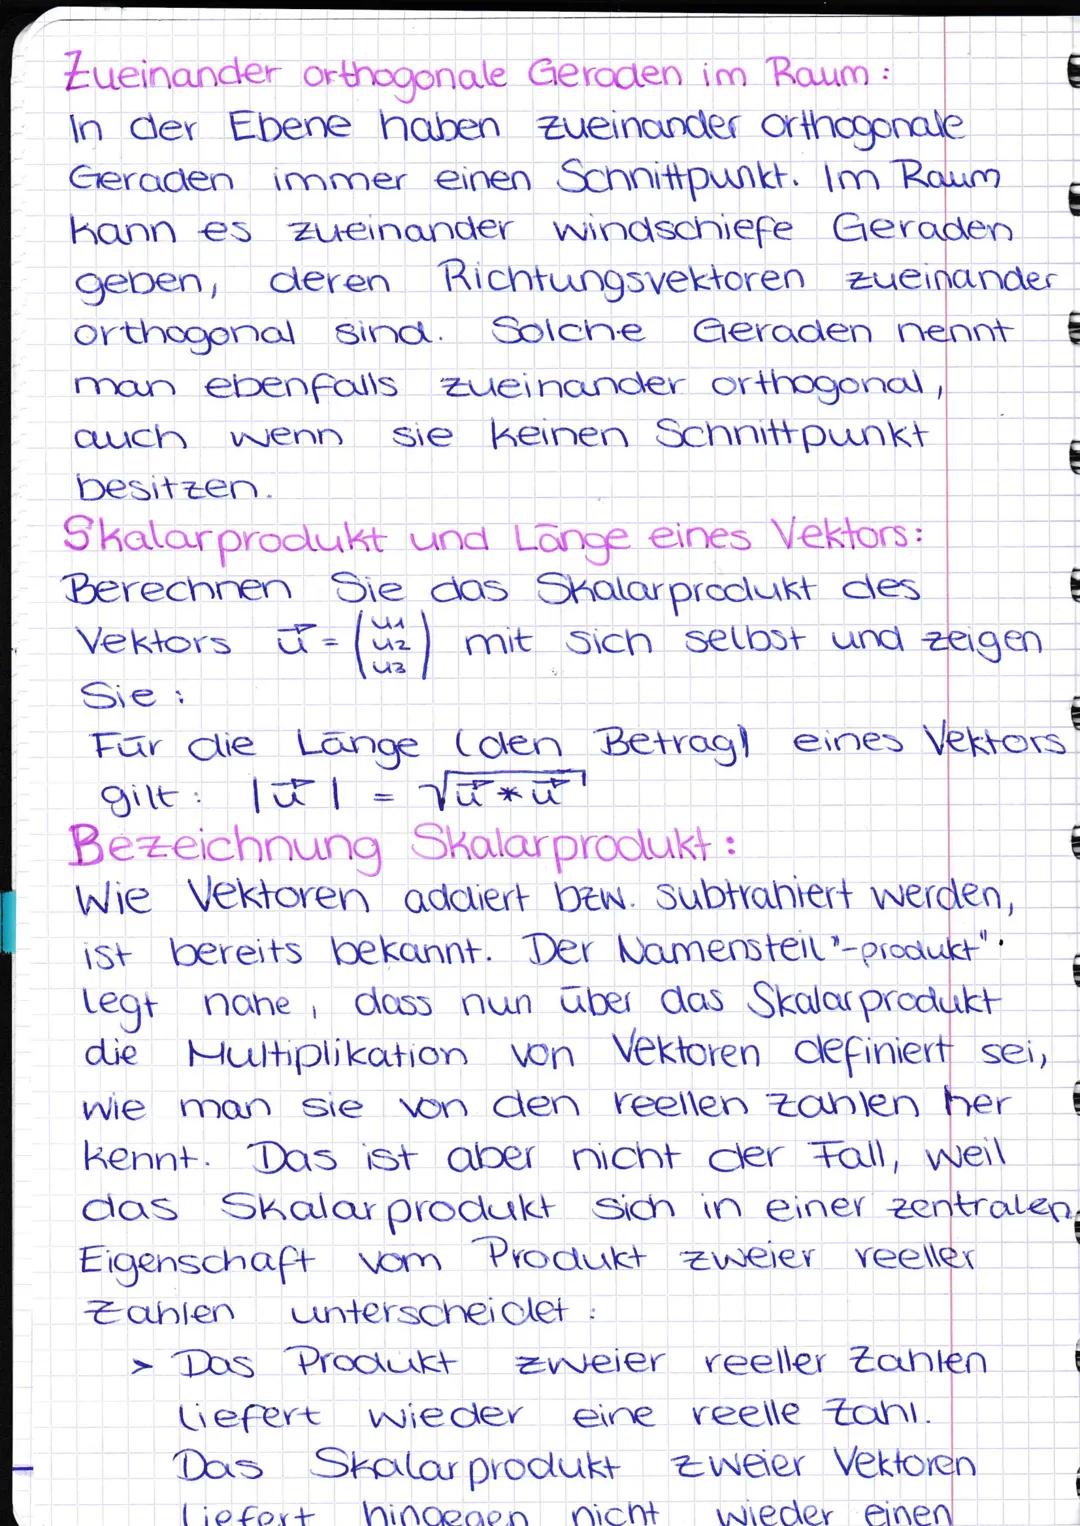 Zueinander orthogonale Geraden im Raum:
In der Ebene haben zueinander orthogonale
Geraden immer einen Schnittpunkt. Im Raum
kann es zueinander windschiefe Geraden
geben, deren Richtungsvektoren zueinander
orthogonal sind. Solche Geraden nennt
man ebenfalls zueinander orthogonal,
auch wenn sie keinen Schnittpunkt
besitzen.
Skalarprodukt und Länge eines Vektors:
Berechnen Sie das Skalarprodukt des
Vektors u⃗ = (u1 u2 u3) mit sich selbst und zeigen
Sie:
Für die Länge (den Betrag) eines Vektors
gilt: |u⃗| = √u⃗ * u⃗
Bezeichnung Skalarprodukt:
Wie Vektoren addiert bzw. subtrahiert werden,
ist bereits bekannt. Der Namensteil "-produkt"
legt nahe, dass nun über das Skalarprodukt
die Multiplikation von Vektoren definiert sei,
wie man sie von den reellen Zahlen her
kennt. Das ist aber nicht der Fall, weil
das Skalarprodukt sich in einer zentralen
Eigenschaft vom Produkt zweier reeller
Zahlen unterscheidet:
> Das Produkt zweier reeller Zahlen
liefert wieder eine reelle Zahl.
Das Skalarprodukt zweier Vektoren
liefert hingegen nicht wieder einen